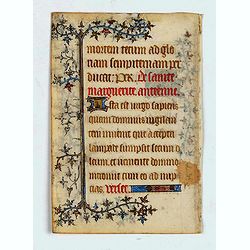 mortem tecum ad glo
riam sempiternam per
ducat. Per. De sainte
marguerite antienne.
Ista est virgo sapiens
quem dominus vigilan
tem invenit que accepta
lampade sumpsit secum o
leum et veniente domino
introivit cum eo ad nup
cias. verset.